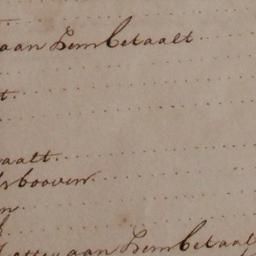 aan hem betaalt
t
aalt
sbooven
n
aan hem betaalt